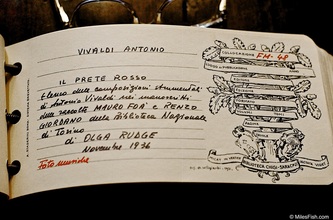 VIVALDI ANTONIO
IL PRETE ROSSO
Elenco delle composizioni strumentali
di Antonio Vivaldi nei manoscritti
delle raccolte MAURO FOÀ e RENZO
GIORDANO della Biblioteca Nazionale
di Torino
di OLGA RUDGE
Novembre 1936
Foto musiche
COLLOCAZIONE FM-48
BIBLIOTECA CHIGI-SARACINI
© MilesFish.com